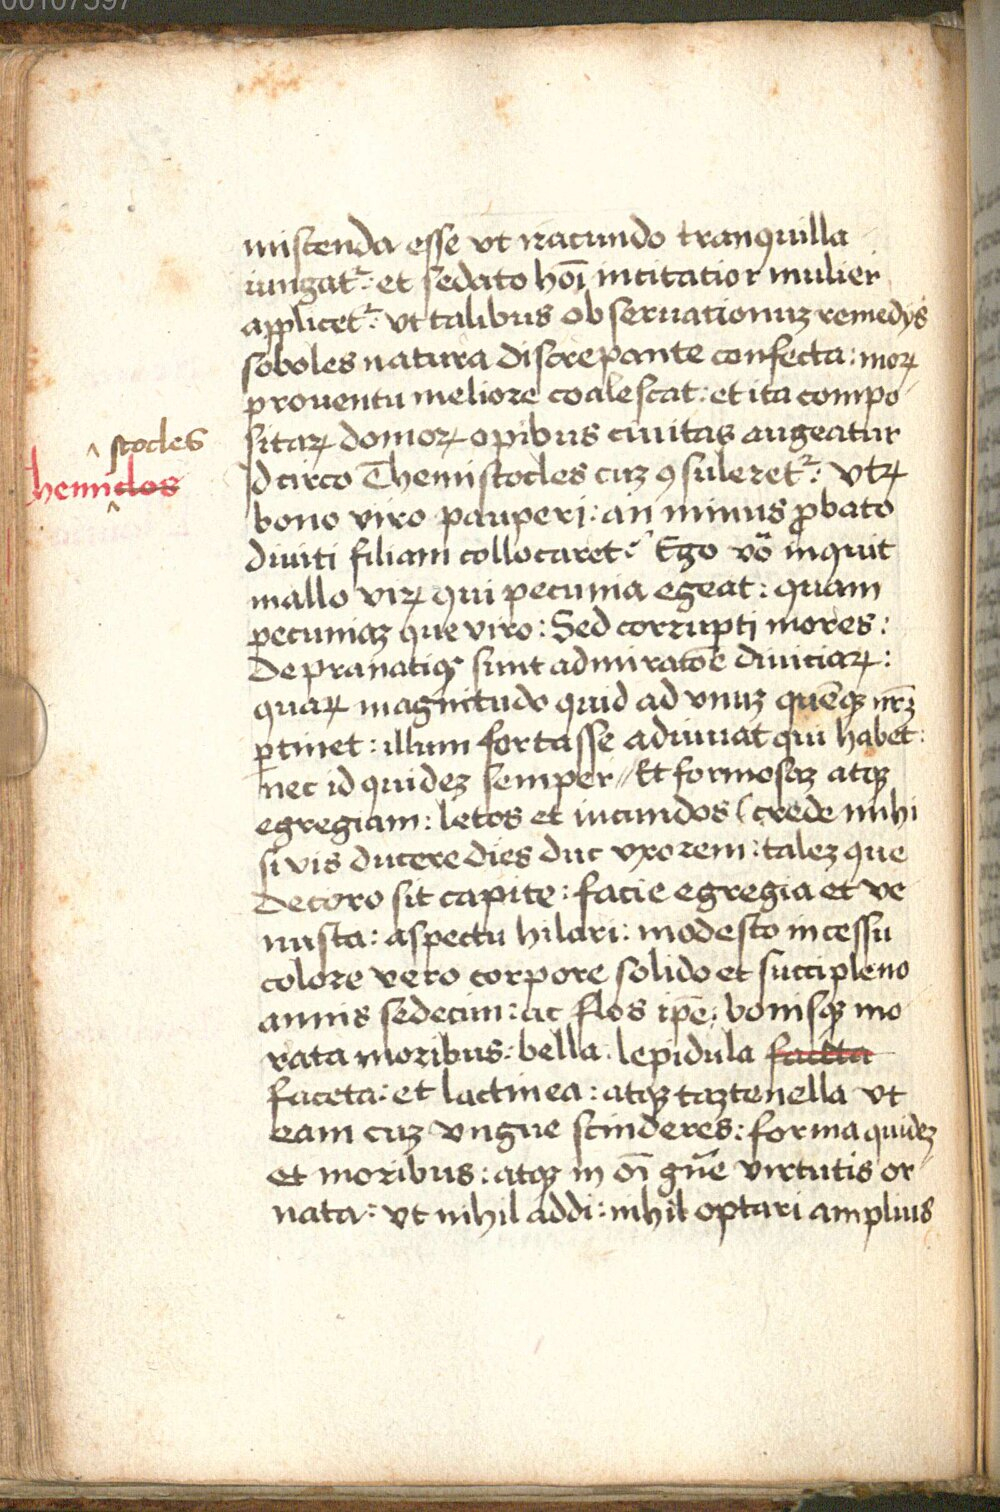 00107597
miscenda esse vt iracundo tranquilla
iungat᷑: et sedato hoī incitatior mulier
applicet᷑: vt talibus obseruationuꝫ remedys
soboles natura discrepante confecta: moꝝ
prouentu meliore coalescat: et ita compo
sitaꝝ domoꝝ opibus ciuitas augeatur
stocles
hemiclos
Idcirco Themistocles cuꝫ ꝯsuleret᷑: vtꝝ
bono viro pauperi: an minus ꝓbato
diuiti filiam collocaret: Ego vō inquit
mallo viꝝ qui pecunia egeat: quam
pecuniaꝫ que viro: Sed corrupti mores:
depranatiqꝫ sunt admiratōe diuiciaꝝ:
quaꝝ magnitudo quid ad vnuꝫ quēqꝫ nr̄ꝫ
ꝑtinet: illum fortasse adiuuat qui habet:
nec id quideꝫ semper // Et formosaꝫ atqꝫ
egregiam: letos et iucundos (crede mihi
si vis ducere dies duc vxorem: taleꝫ que
decoro sit capite: facie egregia et ve
nusta: aspectu hilari: modesto incessu
colore vero corpore solido et succi pleno
annis sedecim: ac flos ipē: bonisqꝫ mo
rata moribus: bella: lepidula faceta
faceta: et lactinea: atqꝫ taꝫ tenella vt
eam cuꝫ vngue scinderes: forma quideꝫ
et moribus: atqꝫ in oī gn̄e virtutis or
nata: vt nihil addi: nihil optari amplius